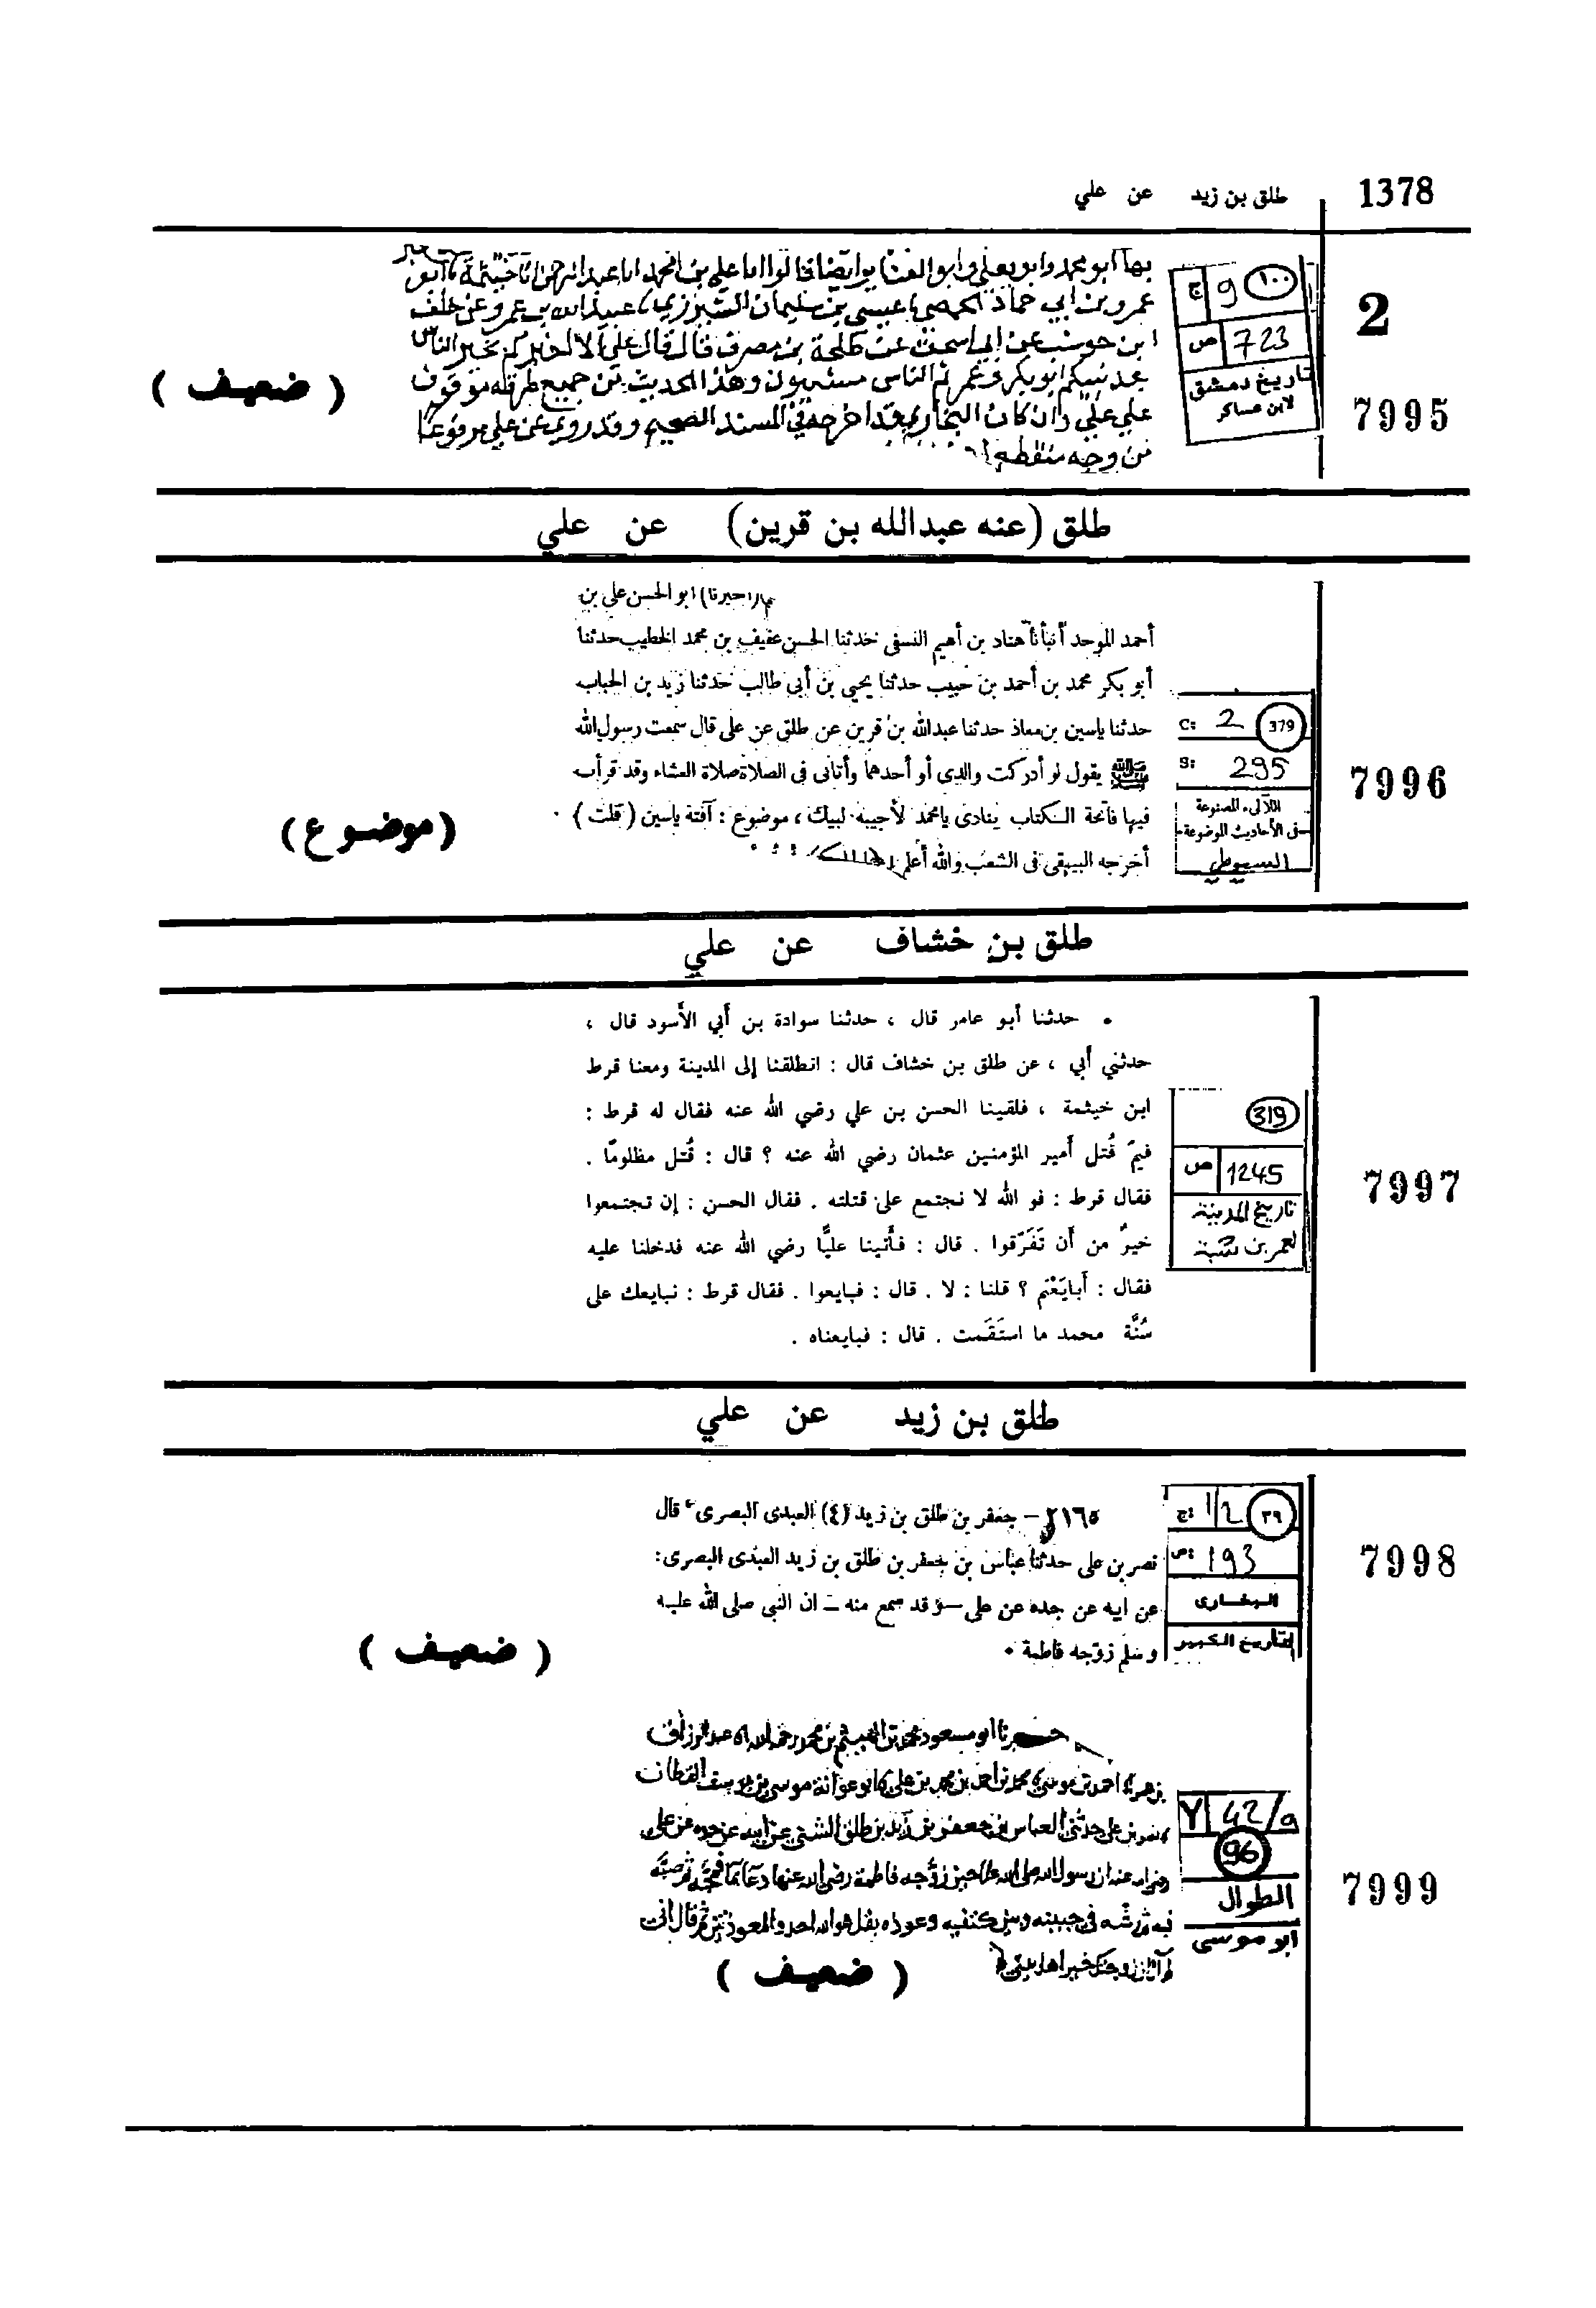 1378
طلق بن زيد عن علي
2
7995
ج 9 ١٠٠
ص 723
تاريخ دمشق
لابن عساكر
بها ابو محمد وابو يعلى وابو الفتيا قالوا انا علي بن محمد انا عبد الرحمن انا خيثمة نا ابو
عمرو بن ابي حماد الحمصي نا عيسى بن سليمان الشيزري نا عبيد الله بن عمرو عن خلف
ابن حوشب عن ابي اسحق عن طلحة بن مصرف قال قال علي الا اخبركم بخير الناس
بعد نبيكم ابو بكر وعمر ثم الناس مستوون وهذا الحديث من جميع طرقه موقوف
على علي وان كان البخاري قد اخرجه في المسند الصحيم وقد روي عن علي مرفوعا
من وجه منقطع
( ضعيف )
طلق (عنه عبدالله بن قرين) عن علي
7996
C: 2 379
S: 295
اللآلىء المصنوعة
فى الأحاديث الموضوعة
السيوطي
(اخبرنا) ابو الحسن علي بن
أحمد الموحد أنبأنا هناد بن أهيم النسفى حدثنا الحسن عفيف بن محمد الخطيب حدثنا
أبو بكر محمد بن أحمد بن حبيب حدثنا يحيى بن أبى طالب حدثنا زيد بن الحباب
حدثنا ياسين بن معاذ حدثنا عبدالله بن قرين عن طلق عن على قال سمعت رسول الله
ﷺ يقول لو أدركت والدى أو أحدهما وأتانى فى الصلاة صلاة العشاء وقد قرأت
فيها فاتحة الكتاب ينادى يامحمد لأجيبه لبيك ، موضوع : آفته ياسين ( قلت )
أخرجه البيهقى فى الشعب والله أعلم
(موضوع)
طلق بن خشاف عن علي
7997
319
ص 1245
تاريخ المدينة
لعمر بن شبة
• حدثنا أبو عامر قال ، حدثنا سوادة بن أبي الأسود قال ،
حدثني أبي ، عن طلق بن خشاف قال : انطلقنا إلى المدينة ومعنا قرط
ابن خيثمة ، فلقينا الحسن بن علي رضي الله عنه فقال له قرط :
فيمَ قُتل أمير المؤمنين عثمان رضي الله عنه ؟ قال : قُتل مظلومًا .
فقال قرط : فو الله لا نجتمع على قتلته . فقال الحسن : إن تجتمعوا
خيرٌ من أن تَفَرّقوا . قال : فأتينا عليًّا رضي الله عنه فدخلنا عليه
فقال : أبايَعْتم ؟ قلنا : لا . قال : فبايعوا . فقال قرط : نبايعك على
سُنَّة محمد ما استَقَمت . قال : فبايعناه .
طلق بن زيد عن علي
7998
ج: 1/2 ٣٩
ص: 193
البخارى
التاريخ الكبير
٢١٦٥ – جعفر بن طلق بن زيد (٤) العبدى البصرى، قال
نصر بن على حدثنا عباس بن جعفر بن طلق بن زيد العبدى البصرى:
عن ابيه عن جده عن على – وقد سمع منه – ان النبى صلى الله عليه
و سلم زوّجه فاطمة .
( ضعيف )
7999
Y 42/a
96
الطوال
ابو موسى
ابو مسعود محمد بن الهيثم بن محمد رحمه الله عبد الرزاق
احمد بن موسى محمد بن احمد بن محمد بن علي ابو عوانة موسى بن يوسف القطان
نصر بن علي حدثني العباس بن جعفر بن زيد بن طلق الشني عن ابيه عن جده عن علي
رضي الله عنه ان رسول الله صلى الله عليه حين زوجه فاطمة رضي الله عنها دعا بما فمجه ثم صبه
فيه ثم رشه في جيبه وبين كتفيه وعوذه بقل هو الله احد والمعوذتين ثم قال اني
زوجتك خير اهل بيتي
( ضعيف )